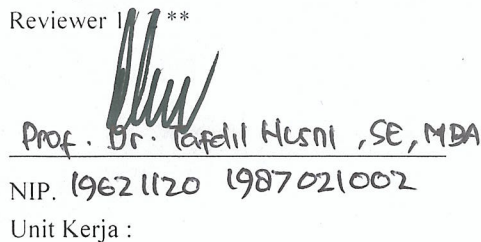 Reviewer 1/2 **
Prof. Dr. Tafdil Husni, SE, MBA
NIP. 19621120 1987021002
Unit Kerja :